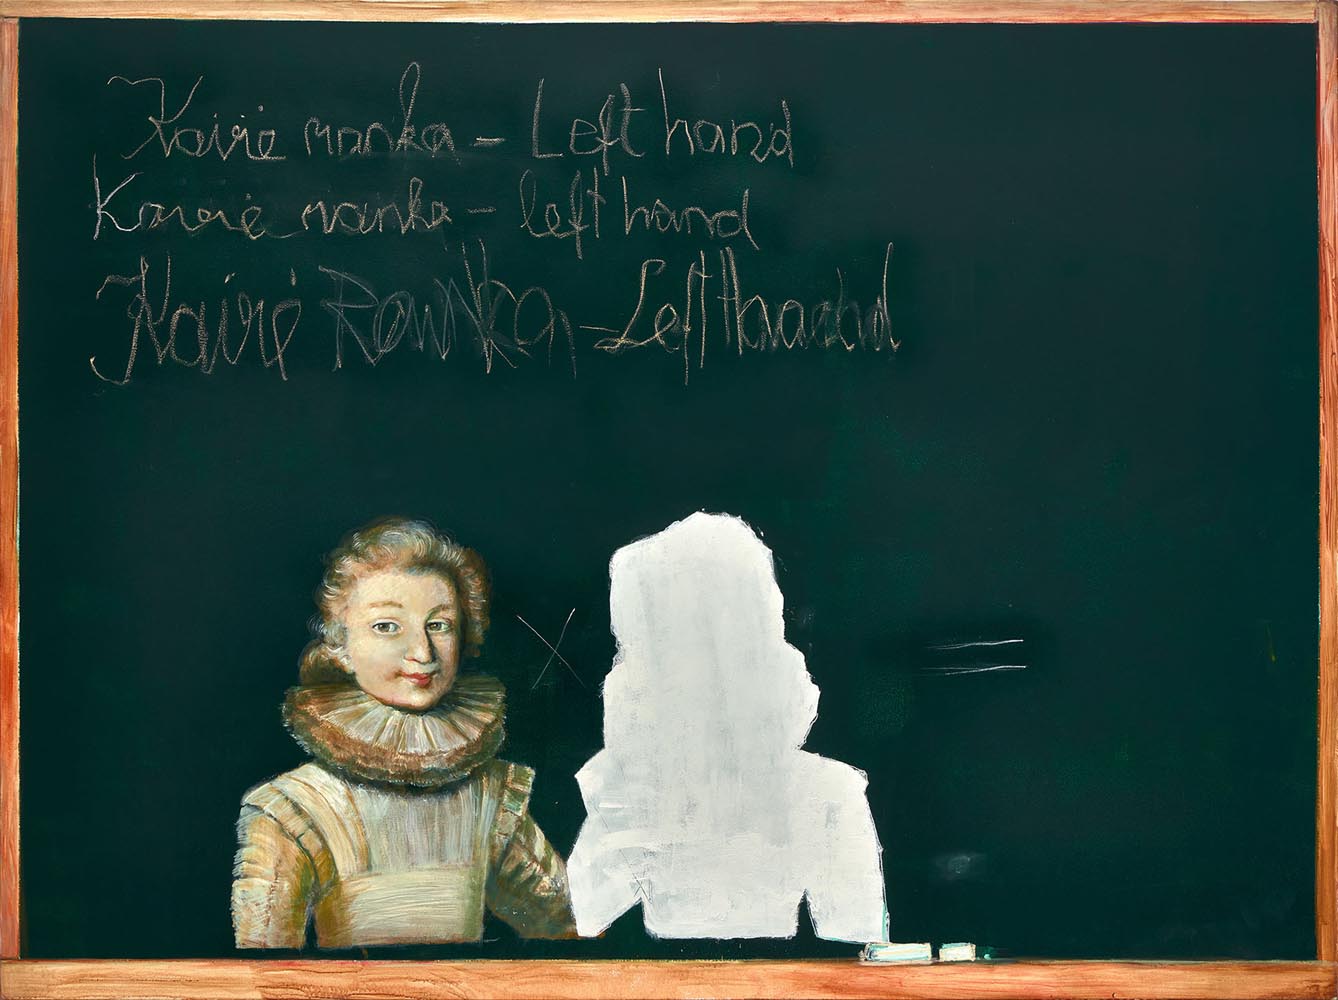 Kairė ranka - Left hand
Kairė ranka - left hand
Kairė Ranka - Left Haand
×
=